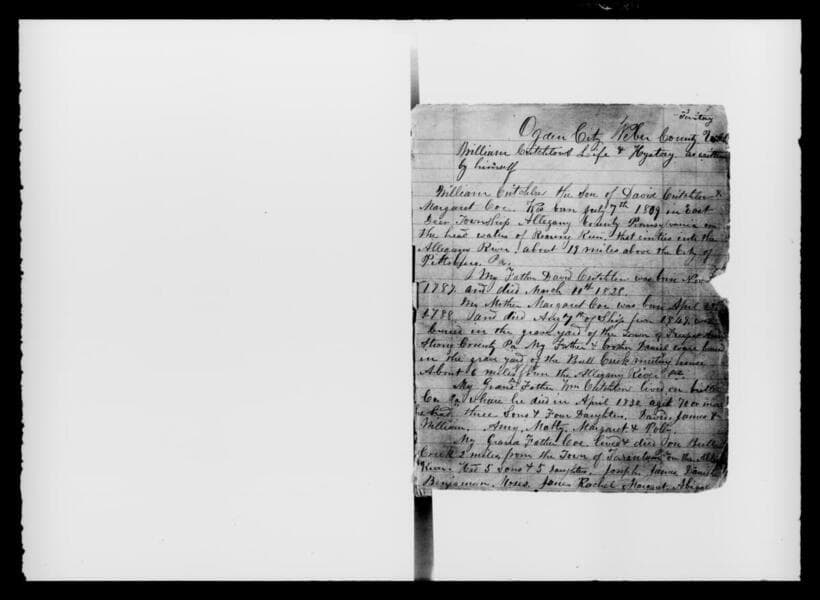 Ogden City Weber County
William Critchlow's Life & Hystory as written
by himself
William Critchlow the son of David Critchlow &
Margaret Coe. was born July 7th 1809 in East
Deer Township Allegany County Pennsylvania on
the head waters of Roaring Run. that emties into the
Allegany River about 19 miles above the City of
Pa.
My Father David Critchlow was born Nov
1787. and died March 11th 1828.
My Mother Margaret Coe was born April
1788. and died 7th of Ship 1849 was
buried in the grave yard of the Town of Freeport
County Pa My Father & brother Daniel were buried
in the grave yard of the Bull Creek meeting house
About 6 miles from the Allegany River
My Grand Father Wm Critchlow lived in butler
Co Pa whare he died in April 1830 aged 70 or more
he had three Sons & Four Daughters. David James &
William. Amy, Matty, Margaret & Polly.
My Grand Father Coe lived & died on Bull
Creek 2 miles from the Town of Tarentum on the
River. Had 5 Sons & 5 Daughters. Joseph James Daniel
Benjaman Moses. Jane Rachel Margaret Abigal